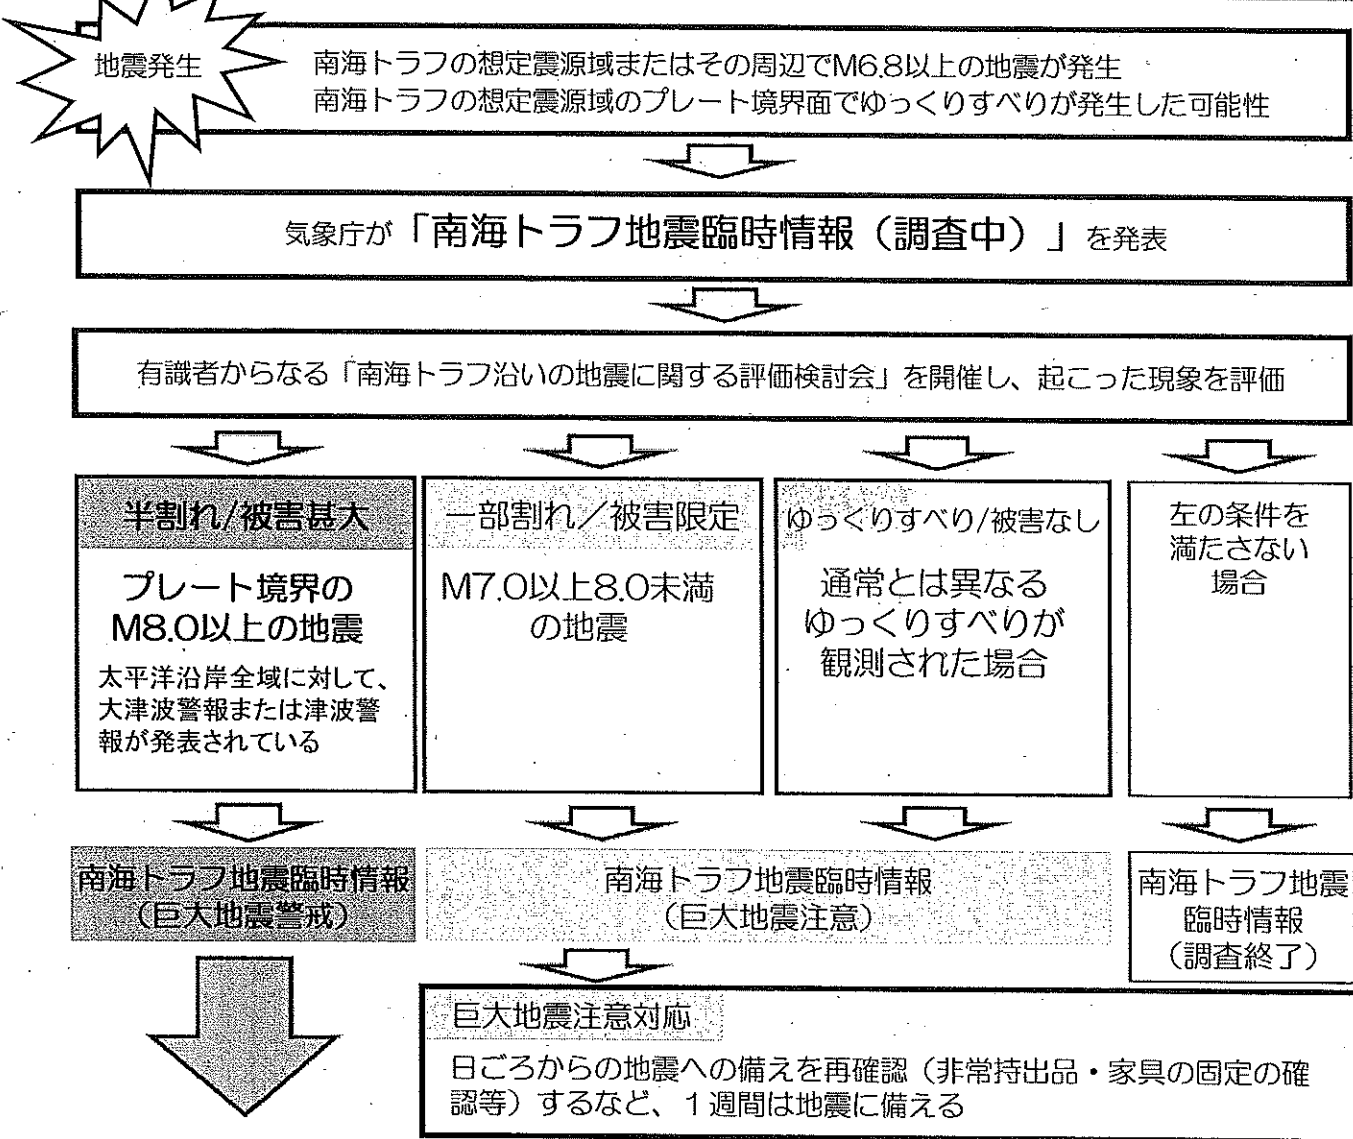 地震発生
南海トラフの想定震源域またはその周辺でM6.8以上の地震が発生
南海トラフの想定震源域のプレート境界面でゆっくりすべりが発生した可能性
気象庁が「南海トラフ地震臨時情報（調査中）」を発表
有識者からなる「南海トラフ沿いの地震に関する評価検討会」を開催し、起こった現象を評価
半割れ/被害甚大
プレート境界の
M8.0以上の地震
太平洋沿岸全域に対して、
大津波警報または津波警
報が発表されている
一部割れ／被害限定
M7.0以上8.0未満
の地震
ゆっくりすべり/被害なし
通常とは異なる
ゆっくりすべりが
観測された場合
左の条件を
満たさない
場合
南海トラフ地震臨時情報
（巨大地震警戒）
南海トラフ地震臨時情報
（巨大地震注意）
南海トラフ地震
臨時情報
（調査終了）
巨大地震注意対応
日ごろからの地震への備えを再確認（非常持出品・家具の固定の確
認等）するなど、１週間は地震に備える